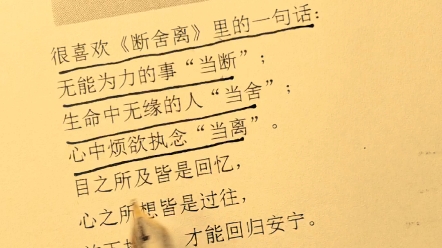 很喜欢《断舍离》里的一句话：
无能为力的事“当断”；
生命中无缘的人“当舍”；
心中烦欲执念“当离”。
目之所及皆是回忆，
心之所想皆是过往，
才能回归安宁。